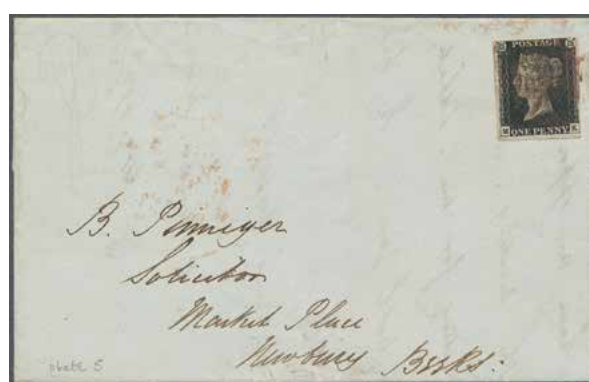 POSTAGE
ONE PENNY
B. Pinniger
Solicitor
Market Place
Newbury Berks:
plate 5